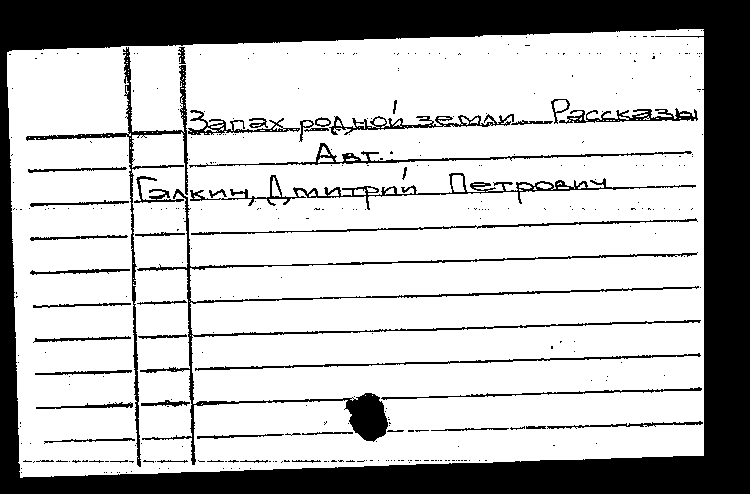 Запах родной земли. Рассказы
Авт.:
Галкин, Дмитрий Петрович